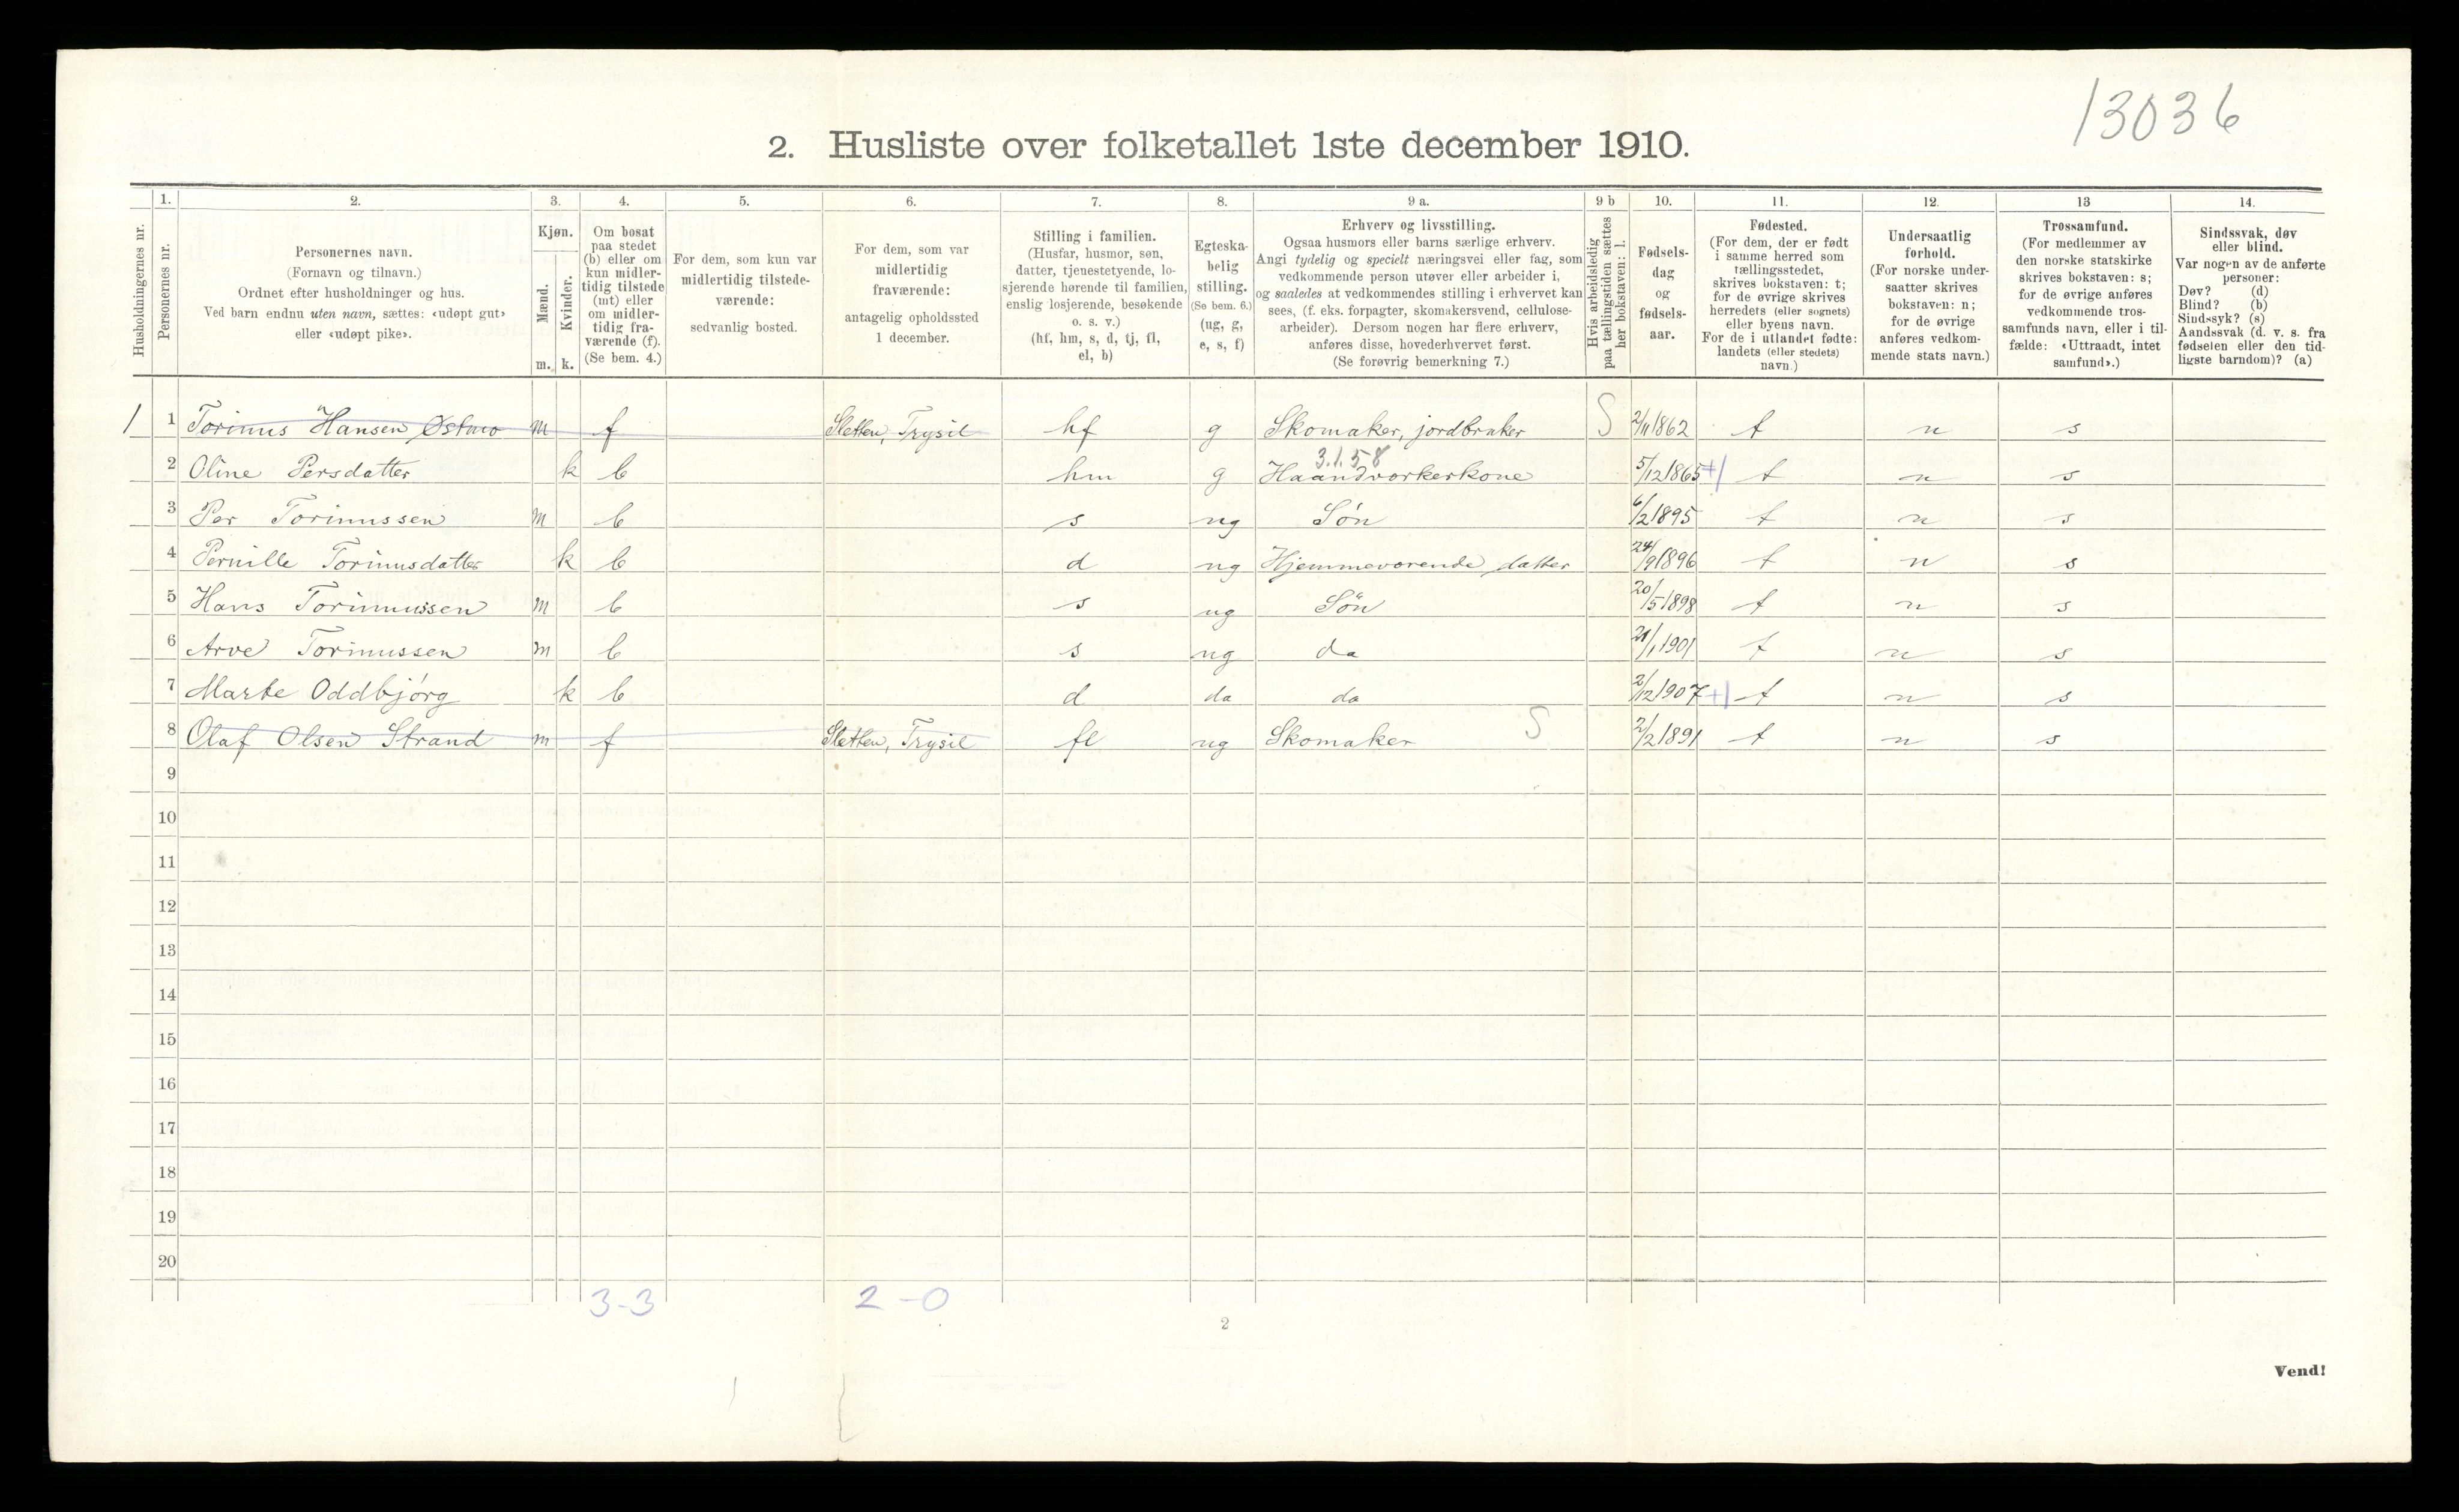 13036
2. Husliste over folketallet 1ste december 1910.
Husholdningernes nr.
1.
Personernes nr.
2.
Personernes navn.
(Fornavn og tilnavn.)
Ordnet efter husholdninger og hus.
Ved barn endnu uten navn, sættes: «udøpt gut»
eller «udøpt pike».
3.
Kjøn.
Mænd.
m.
Kvinder.
k.
4.
Om bosat
paa stedet
(b) eller om
kun midler-
tidig tilstede
(mt) eller
om midler-
tidig fra-
værende (f).
(Se bem. 4.)
5.
For dem, som kun var
midlertidig tilstede-
værende:
sedvanlig bosted.
6.
For dem, som var
midlertidig
fraværende:
antagelig opholdssted
1 december.
7.
Stilling i familien.
(Husfar, husmor, søn,
datter, tjenestetyende, lo-
sjerende hørende til familien,
enslig losjerende, besøkende
o. s. v.)
(hf, hm, s, d, tj, fl,
el, b)
8.
Egteska-
belig
stilling.
(Se bem. 6.)
(ug, g,
e, s, f)
9 a.
Erhverv og livsstilling.
Ogsaa husmors eller barns særlige erhverv.
Angi tydelig og specielt næringsvei eller fag, som
vedkommende person utøver eller arbeider i,
og saaledes at vedkommendes stilling i erhvervet kan
sees, (f. eks. forpagter, skomakersvend, cellulose-
arbeider). Dersom nogen har flere erhverv,
anføres disse, hovederhvervet først.
(Se forøvrig bemerkning 7.)
9 b
Hvis arbeidsledig
paa tællingstiden sættes
her bokstaven: l.
10.
Fødsels-
dag
og
fødsels-
aar.
11.
Fødested.
(For dem, der er født
i samme herred som
tællingsstedet,
skrives bokstaven: t;
for de øvrige skrives
herredets (eller sognets)
eller byens navn.
For de i utlandet fødte:
landets (eller stedets)
navn.)
12.
Undersaatlig
forhold.
(For norske under-
saatter skrives
bokstaven: n;
for de øvrige
anføres vedkom-
mende stats navn.)
13
Trossamfund.
(For medlemmer av
den norske statskirke
skrives bokstaven: s;
for de øvrige anføres
vedkommende tros-
samfunds navn, eller i til-
fælde: «Uttraadt, intet
samfund».)
14.
Sindssvak, døv
eller blind.
Var nogen av de anførte
personer:
Døv? (d)
Blind? (b)
Sindssyk? (s)
Aandssvak (d. v. s. fra
fødselen eller den tid-
ligste barndom)? (a)
1 1 Torinus Hansen Østmo m f Sletten, Trysil hf g Skomaker, jordbruker S 2/11 1862 t n s
3.1.58
2 Oline Persdatter k b hm g Haandverkerkone 5/12 1865 +1 t n s
3 Per Torinussen m b s ug Søn 6/2 1895 t n s
4 Pernille Torinusdatter k b d ug Hjemmeværende datter 24/9 1896 t n s
5 Hans Torinussen m b s ug Søn 20/5 1898 t n s
6 Arve Torinussen m b s ug da 21/1 1901 t n s
7 Marte Oddbjørg k b d da da 2/12 1907 +1 t n s
8 Olaf Olsen Strand m f Sletten, Trysil fl ug Skomaker S 2/2 1891 t n s
9
10
11
12
13
14
15
16
17
18
19
20
3-3 2-0
2
Vend!